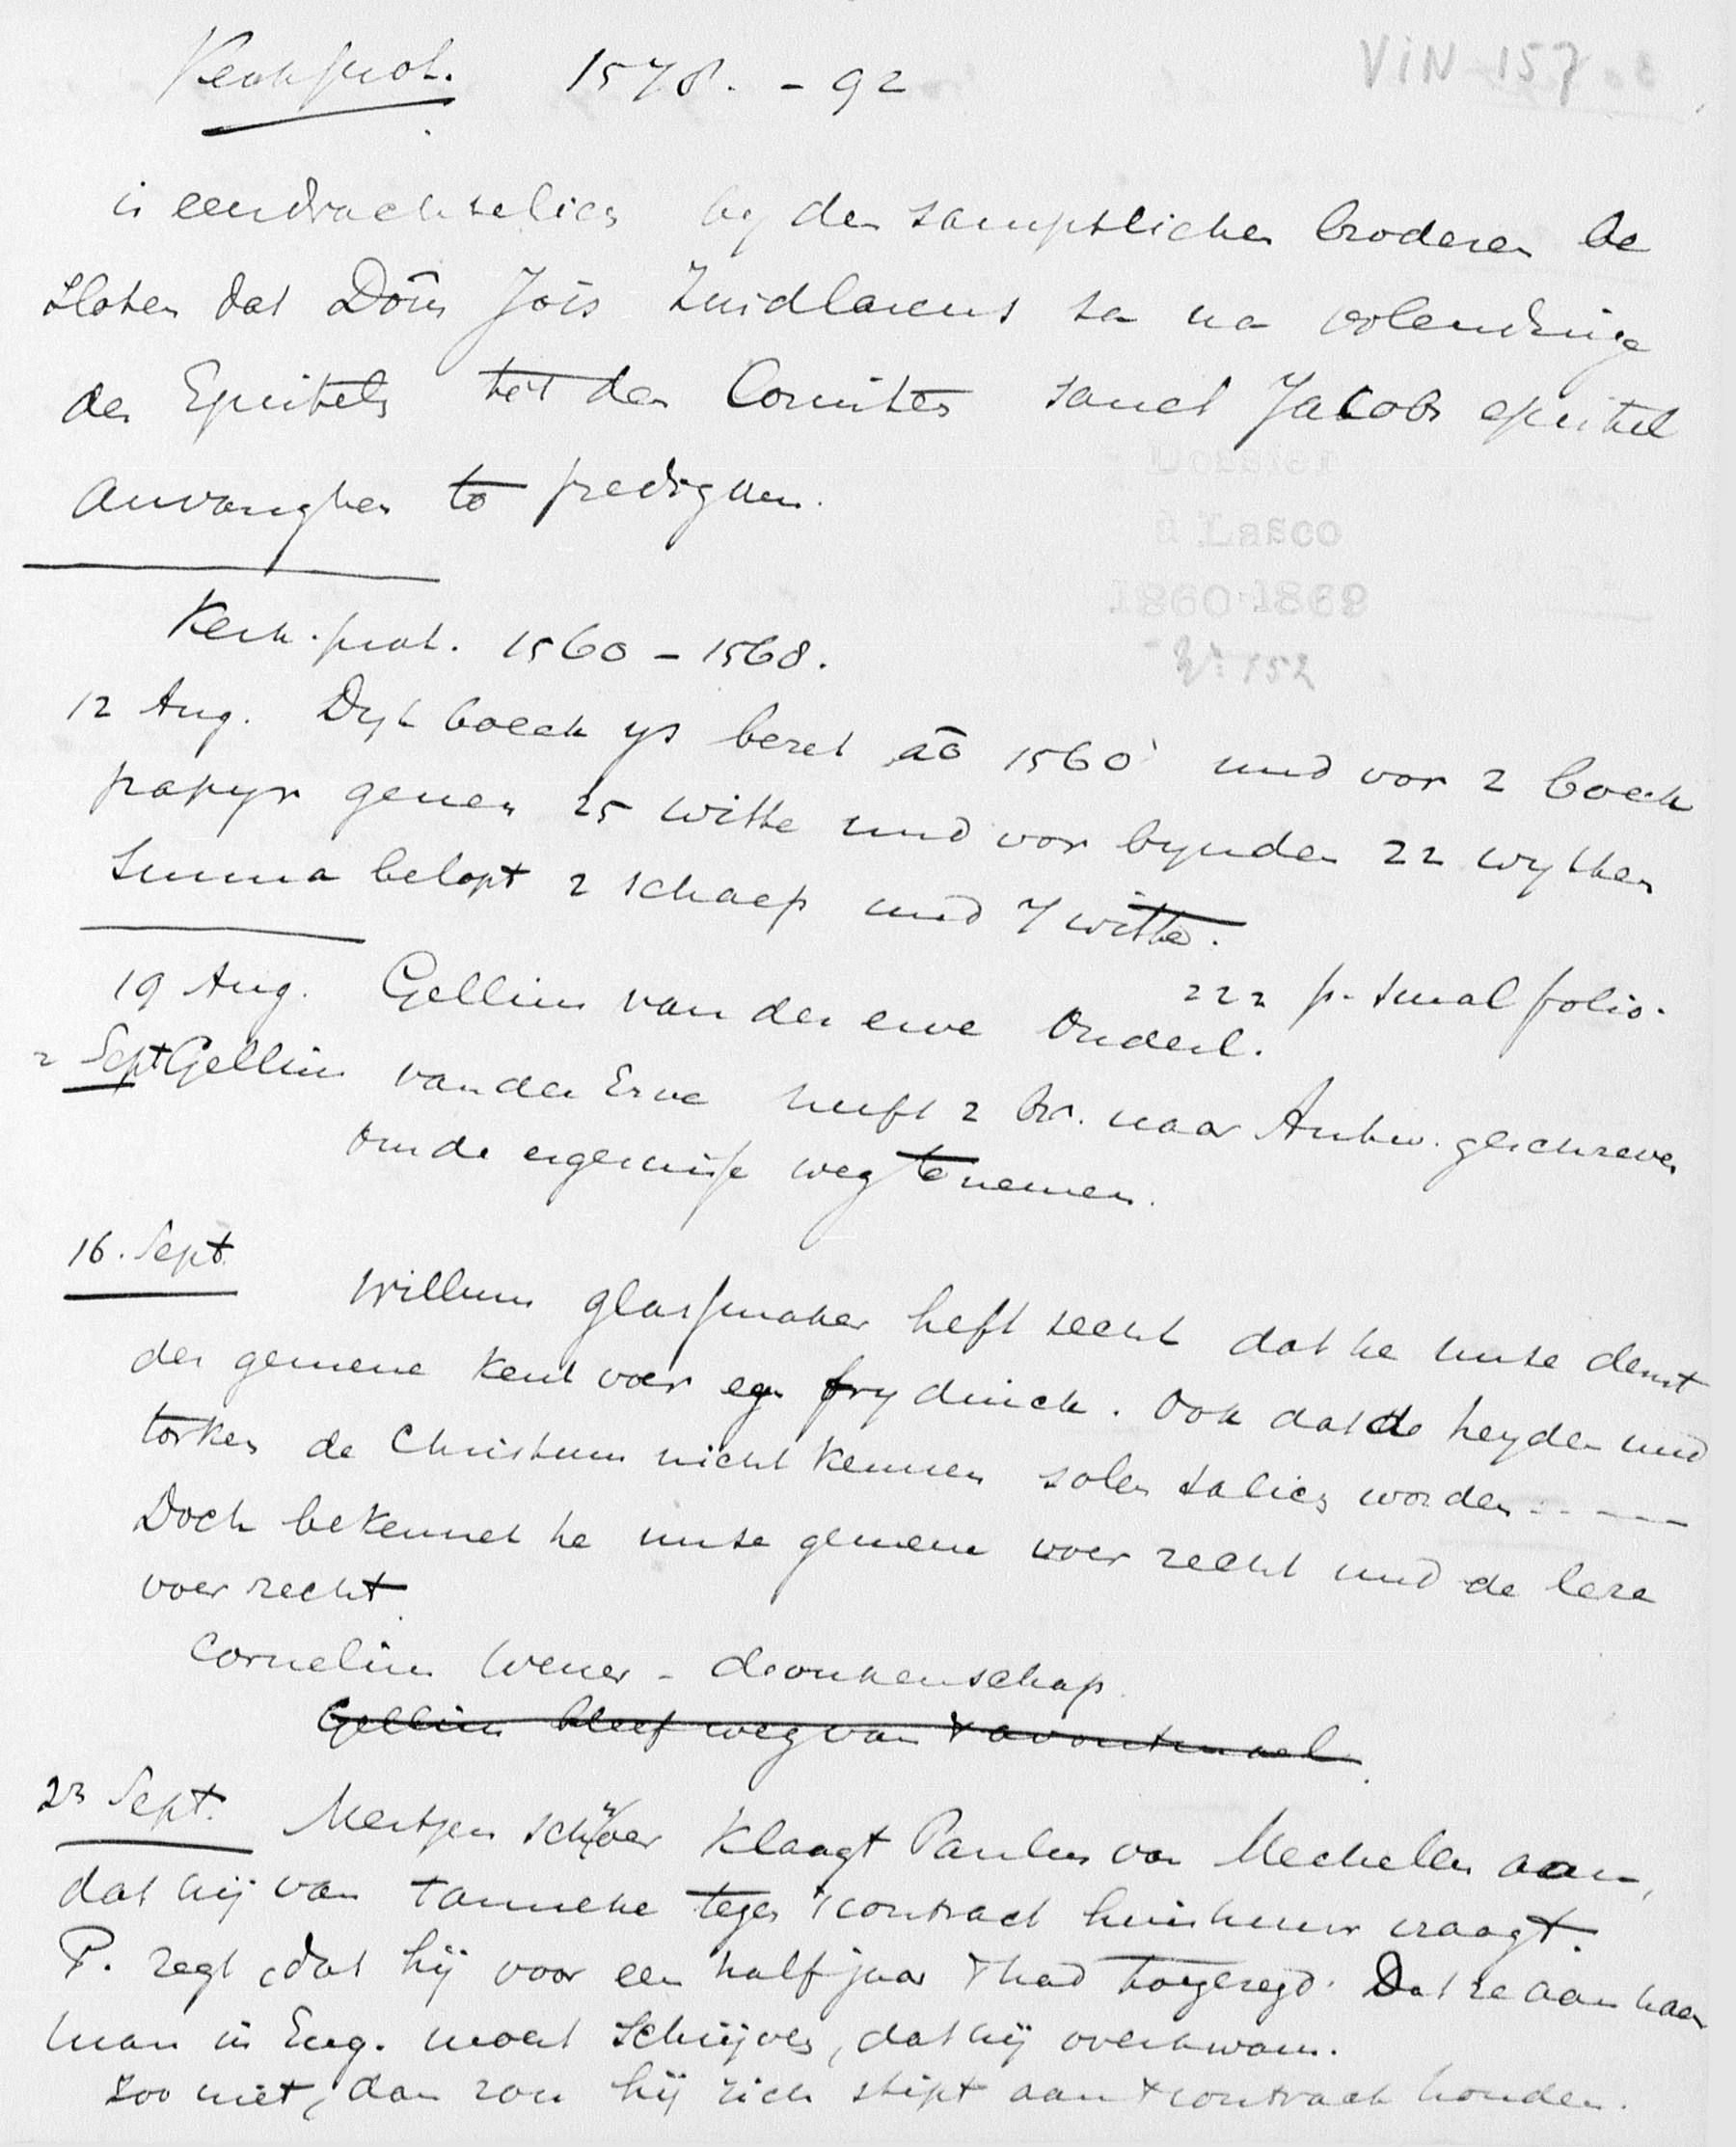 Kerkprot. 1578. - 92
VIN 157
is eendrachtelics by den samptlichen broderen be
sloten dat Dōm Joīs Zuidlarens sa na volendinge
des Epistels tot den Comites sanct Jacobs epistel
anvanghen to predigen.
à Lasco
1860-1869
No 152
Kerk.prot. 1560 - 1568.
12 Aug. Dyt boeck ys beret aō 1560 und vor 2 boeck
papyr geuen 25 witte und vor bynden 22 wytten
Summa belopt 2 schaep und 7 witte.
222 p. smal folio.
19 Aug. Gellius van der erve Ouderl.
2 Sept Gellius van der Erve heeft 2 br. naar Antw. geschreven
om de ergernisse weg te nemen.
16. Sept. Willum glassmaker heft secht dat he unse denst
der gemene kent voer eyn fry dinck. Ook dat de heyden und
torken de Christum nicht kennen solen salics worden - - - - -
Doch bekennet he unse gemene voer recht und de lere
voer recht.
Cornelius Wever - dronkenschap.
Gellius bleef weg van 't avontmael.
23 Sept. Mertyen schver klaagt Paulus van Mechelen aan,
dat hij van Tanneke tegen 't contract huishuur vraagt.
P. zegt, dat hij voor een half jaar 't had toegezegd. Dat ze aan haar
man in Eng. moest schrijven, dat hij overkwam.
Zoo niet, dan zou hij zich stipt aan 't contract houden.